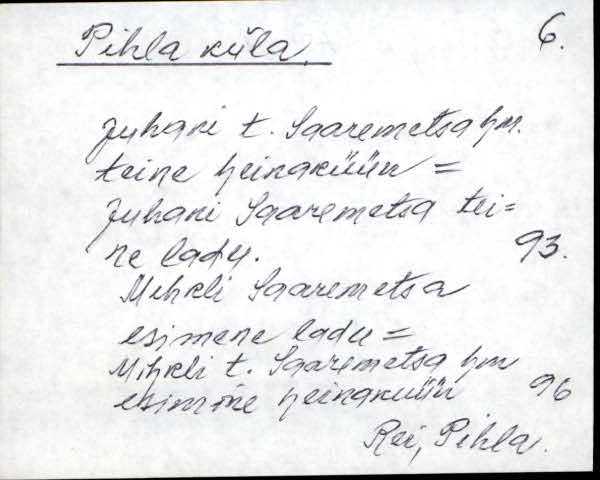 Pihla küla.
6.
Juhani t. Saaremetsa hm.
teine heinaküün =
Juhani Saaremetsa tei=
ne ladu. 93.
Mihkli Saaremetsa
esimene ladu =
Mihkli t. Saaremetsa hm
esimene heinaküün 96
Rei, Pihla.